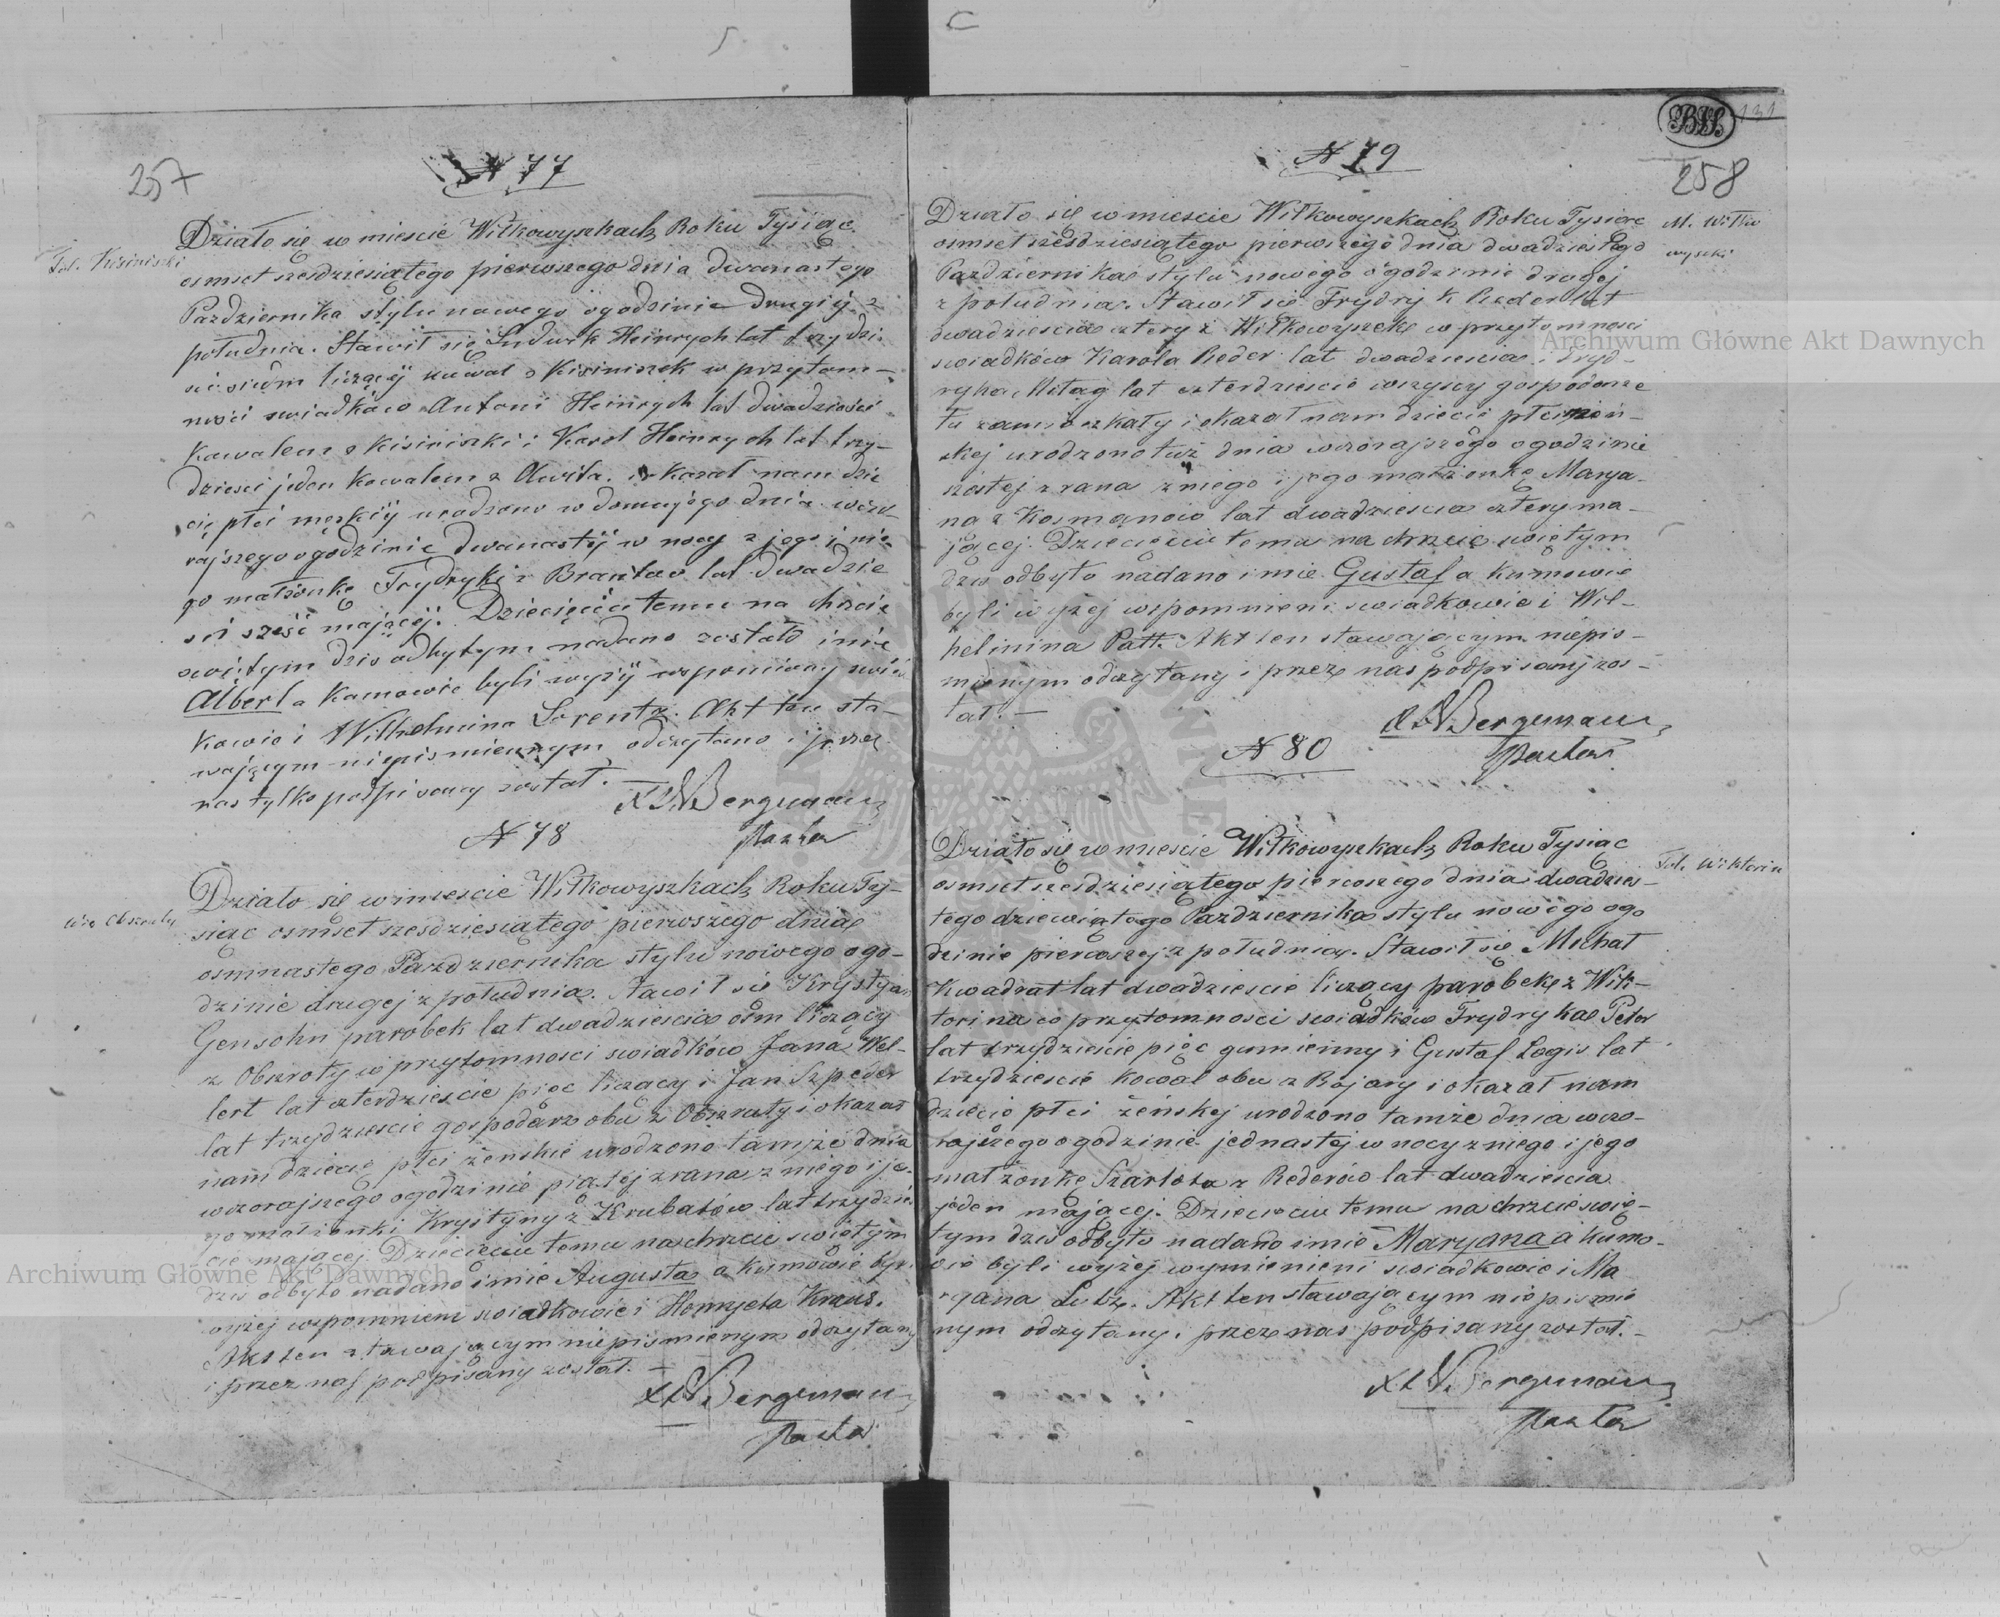 257
N 77
Fol. Kisiniszki
Działo się w mieście Wiłkowyszkach Roku Tysiąc
osmset szesdziesiątego pierwszego dnia dwunastego
Pazdziernika stylu nowego ogodzinie drugiéj z
południa. Stawił się Ludwik Heinrych lat trzydzi
sci siedm liczącÿ kowal z Kisiniszek w przytom-
ności swiadków Antoni Heinrych lat dwadziesci
Kowalem z Kisiniszki i Karol Heinrych lat trzy-
dziesci jeden Kowalem z i okazał nam dzie
cię płci męzkiÿ urodzone w domu jego dnia wczo
rajszego ogodzinie dwunastÿ w nocy z jego i nie
go małżonkę Frydryki z Brantow lat dwadzie
sci sześć mającéj. Dziecięciu temu na chrzcie
świętym dzis odbytym nadano zostało imie
Albert a Kumowie byli wyżÿ wspomniany świad
kowie i Wilhelmina Lorentz. Akt ten sta-
wającym niepismiennym odczytano i przez
nas tylko podpisany został.
X L W Bergemann
Pastor
N 78
Obszruty
Działo się w miescie Wiłkowyszkach Roku Ty-
siąc osmset szesdziesiątego pierwszego dnia
osmnastego Pazdziernika stylu nowego ogo-
dzinie drugej z południa. Stawił sie Krystyan
Gensohn parobek lat dwadziescia osm liczący
z Obszroty w przytomnosci swiadków Jana Wel-
lert lat czterdziescie pięc liczacy i Jan Szpeder
lat trzydziescie gospodarz obu z Obszruty i okazał
nam dziecię płci żenskie urodzono tamże dnia
wczorajszego ogodzinie piątej z rana z niego i je-
go małzonki Krystyny z Krubatów lat trzydzie
scie mającej Dziecięciu temu na chrzcie swiętym
dzis odbyto nadano imie Augusta a kumowie byli
wyżej wspomnieni swiadkowie i Henryeta Kraus.
Akt ten stawającym niepismienym odczytany
i przez nas podpisany został. -
X L W. Bergemann
Pastor
131
258
N 79
M. Wiłko
wyszki
Działo się w miescie Wiłkowyszkach Roku Tysiąc
osmset szesdziesiątego pierwszego dnia dwadziestego
Pazdziernika stylu nowego ogodzinie drugej
z południa. Stawił sie Frydryk Reder lat
dwadziescia cztery z Wiłkowyszek w przytomnosci
swiadków Karola Reder lat dwadziescia i Fryd-
ryka Mitag lat czterdziescie wszyscy gospodarze
tu zamieszkały i okazał nam dziecie płci męn-
skej urodzono tuż dnia wczorajszego ogodzinie
szostej z rana z niego i jego małzonkę Marya-
na z Kosmanow lat dwadziescia cztery ma-
jącej. Dziecięciu temu na chrzcie swiętym
dzis odbyto nadano imie Gustaf a kumowie
byli wyżej wspomnieni swiadkowie i Wil-
helmina Patt. Akt ten stawającym niepis-
mienym odczytany i przez nas podpisany zos-
tał. -
X L W Bergemann
Pastor
N 80
Fol. Wiktorin
Działo się w miescie Wiłkowyszkach Roku Tysiąc
osmset szesdziesiątego pierwszego dnia dwadzies-
tego dziewiątego Pazdziernika stylu nowego ogo
dzinie pierwszej z południa. Stawił sie Michał
Kwadrat lat dwadziescie liczący parobek z Wik-
torina w przytomnosci swiadków Frydryka Peter
lat trzydziescie pięc gumienny i Gustaf Logis lat
trzydziescie kowal obu z Bojary i okazał nam
dziecie płci żeńskej urodzono tamże dnia wczo-
rajszego ogodzinie jednastej w nocy z niego i jego
małzonkę Szarlota z Rederów lat dwadziescia
jeden mającej. Dziecieciu temu na chrzcie swię-
tym dzis odbyto nadano imie Maryana a kumo-
wie byli wyżej wymienieni swiadkowie i Ma
ryana Lutz. Akt ten stawającym niepismie
nym odczytany i przez nas podpisany został. -
X L W. Bergemann
Pastor
Archiwum Główne Akt Dawnych
Archiwum Główne Akt Dawnych